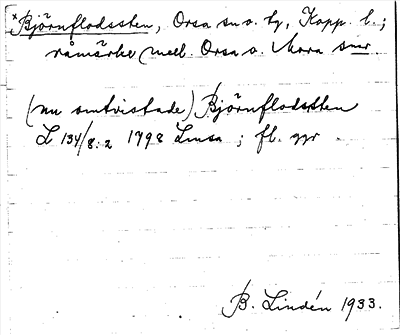 *Björnflodssten, Orsa sn o. tg, Kopp. l.;
råmärke mell. Orsa o. Mora snr
(nu omtvistade) Björnflodstten
L 134/8:2 1798 Lmsa; fl. ggr.
B. Lindén 1933.